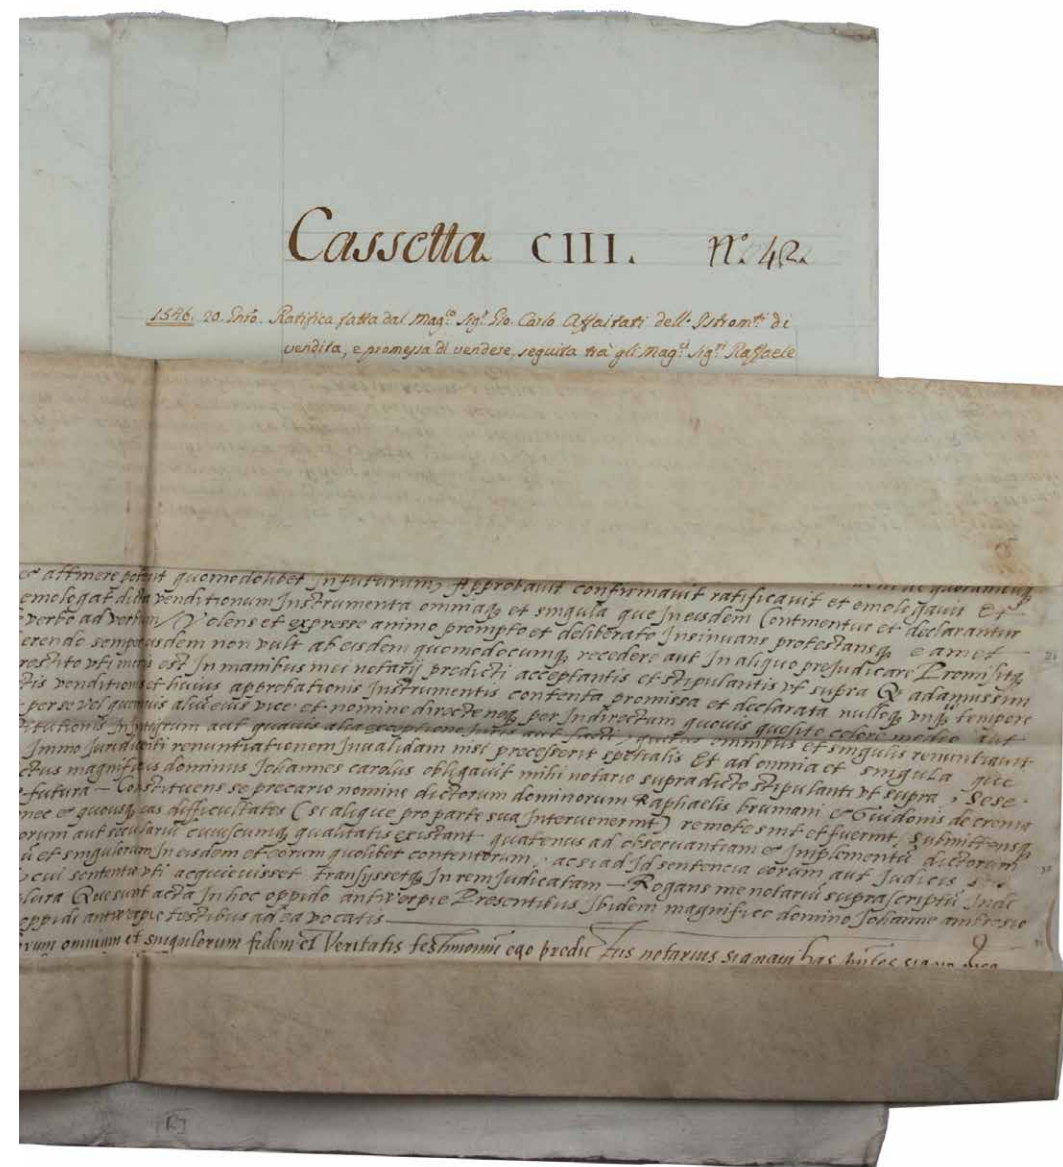 Cassetta CIII. N.º 42.
1546. 20. Ratifica fatta dal Mag.co Sig.r Gio. Carlo Affaitati dell' Istrom.ti di
vendita, e promessa di vendere, seguita trà gli Mag.ci Sig.ri Raffaele
quomodolibet in futurum, Approbavit confirmavit ratificavit et emologavit Et
venditionum Instrumenta omniaq, et singula que in eisdem Continentur et declarantur
verbo ad verbum Volens et expresse animo prompto et deliberato Insinuans protestansq, eamet
eisdem non vult ab eisdem quomodocumq, recedere aut In aliquo prejudicare Promisitq,
est In manibus mei notarij predicti acceptantis et stipulantis vt supra Q adamussim
et huius approbationis Instrumentis contenta promissa et declarata nulloq, vnq, tempore
per se vel alium eius vice et nomine directe neq, per Indirectum quovis quesito colore
aut quavis alia exceptione Juris aut facti, quibus omnibus et singulis renuntiavit
Immo renuntiationem Invalidam nisi precesserit spetialis Et ad omnia et singula que
magnificus dominus Johannes carolus obligavit mihi notario supradicto stipulanti vt supra, Sese
futura — Constituens se precario nomine dictorum dominorum Raphaelis brumani et Guidonis de crema
et quousq, eas difficultates (si alique pro parte sua Intervenerint) remote sint et fuerint, Submittensq
aut secularium cuiuscumq, qualitatis existant quatenus ad observantiam et Implementu dictorum
et singulorum In eisdem et eorum quolibet contentorum, ac si ad Id sentencia eorum aut Judicis
cui sententie acquievisset transijssetq, In rem Judicatam — Rogans me notariu suprascriptu Inde
Que sunt acta In hoc oppido antverpie Presentibus Ibidem magnifico domino Johanne ambrosio
oppidi antverpie testibus ad ea vocatis
omnium et singulorum fidem et Veritatis testimonium ego predictus notarius signavi has